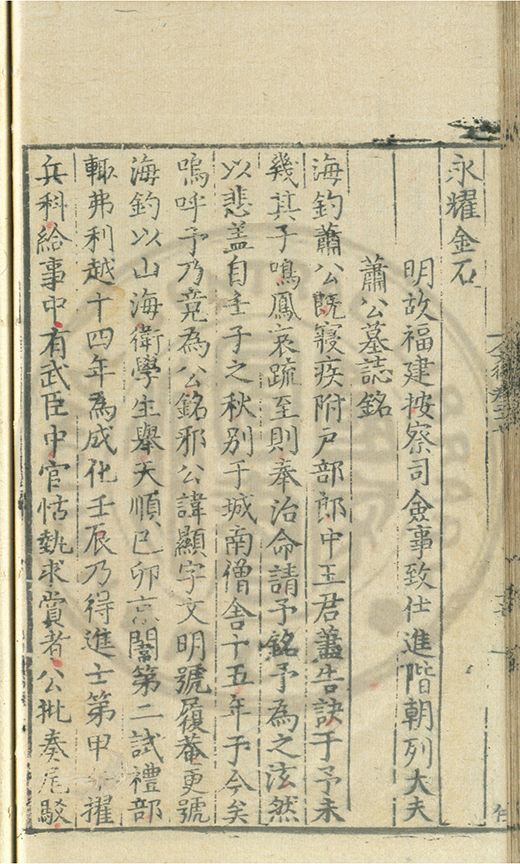 永耀金石
明故福建按察司僉事致仕進階朝列大夫
蕭公墓誌銘
海釣蕭公既寢疾附戶部郎中王君蓋告訣于予未
幾其子鳴鳳哀疏至則奉治命請予銘予為之泫然
以悲盖自壬子之秋别于城南僧舍十五年于今矣
嗚呼予乃竟為公銘邪公諱顯字文明號履菴更號
海釣以山海衛學生舉天順己卯京闈第二試禮部
輒弗利越十四年為成化壬辰乃得進士第甲午擢
兵科給事中有武臣中官怙埶求賞者公批奏尾駁